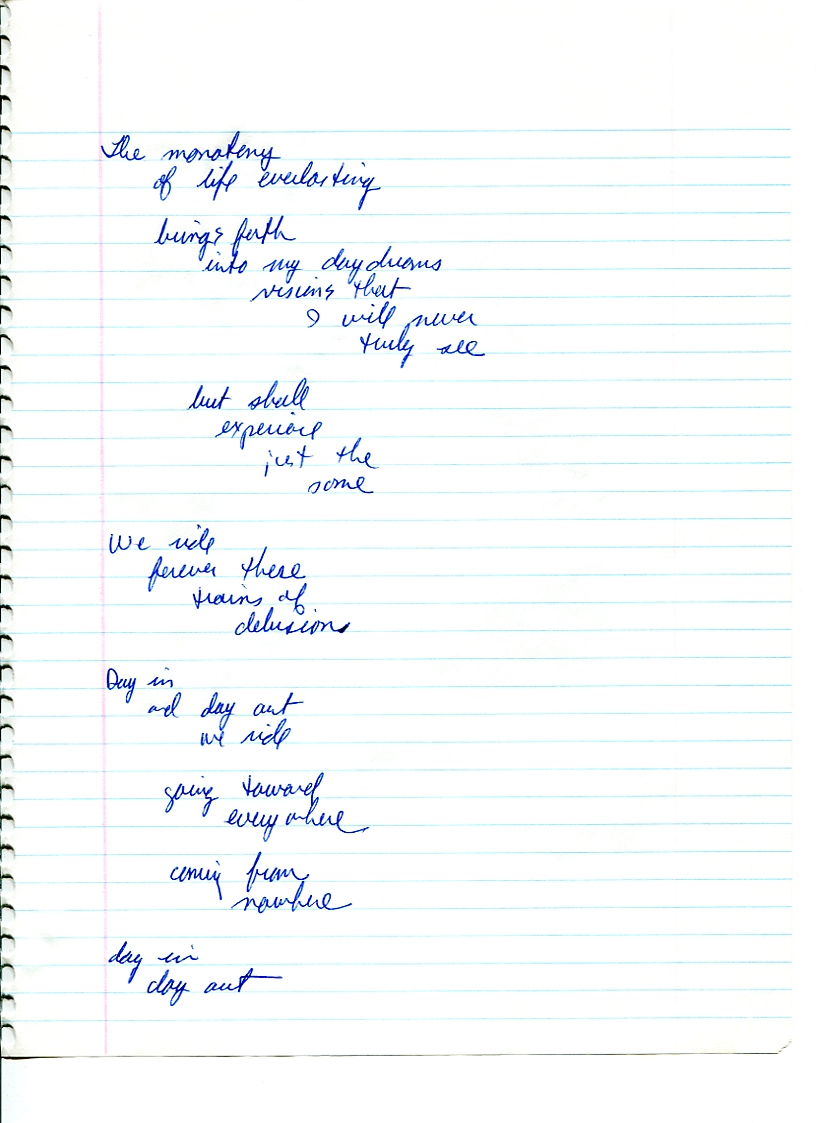 The monateny
of life everlasting
brings forth
into my daydreams
visions that
I will never
truly see
but shall
experience
just the
same
We ride
forever these
trains of
delusions
Day in
and day out
we ride
going toward
everywhere
coming from
nowhere
day in
day out